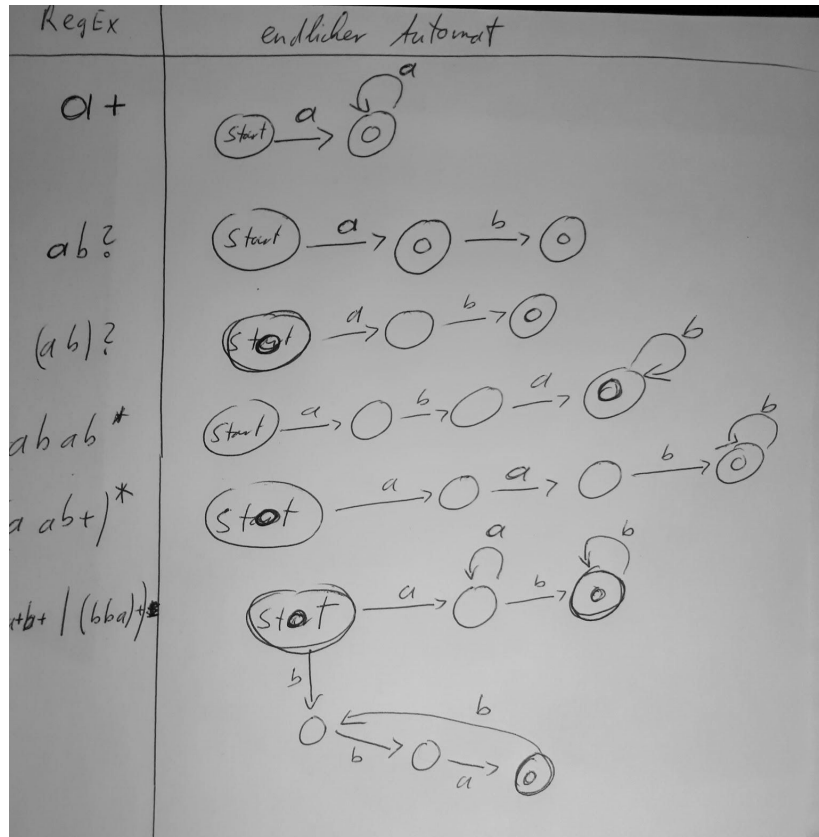 RegEx endlicher Automat
a+
a
Start a
ab?
Start a b
(ab)?
Start a b
abab*
Start a b a b
a ab+)*
Start a a b b
+b+ | (bba)+
Start a a b b
b
b
b a